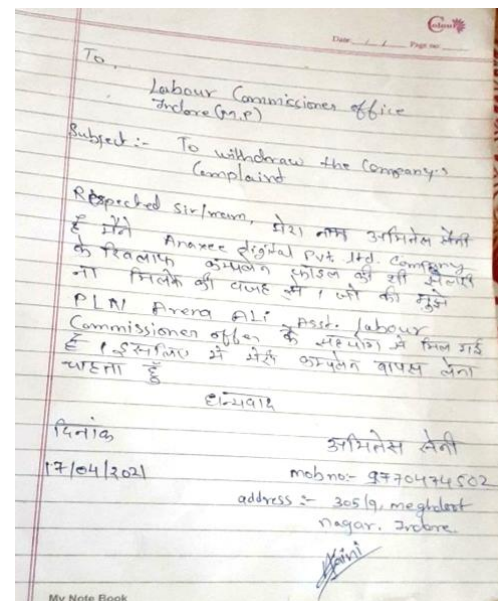 Date / / Page no
To,
Labour Commissioner office
Indore (M.P)
Subject :- To withdraw the Company's
Complaint
Respected Sir/mem, मेरा नाम अमितेस सैनी
है मैंने Anaxee digital Pvt. ltd. Company
के खिलाफ कम्पलेन फाईल की थी सैलेरी
ना मिलने की वजह से । जो की मुझे
Asst. labour
Commissioner के सहयोग से मिल गई
है । इसलिए में मेरी कम्पलेन वापस लेना
चाहता हूँ
धन्यवाद
दिनांक
अमितेस सैनी
17/04/2021
mobno:- 9770474502
address :- 305/9, meghdoot
nagar. Indore.
My Note Book